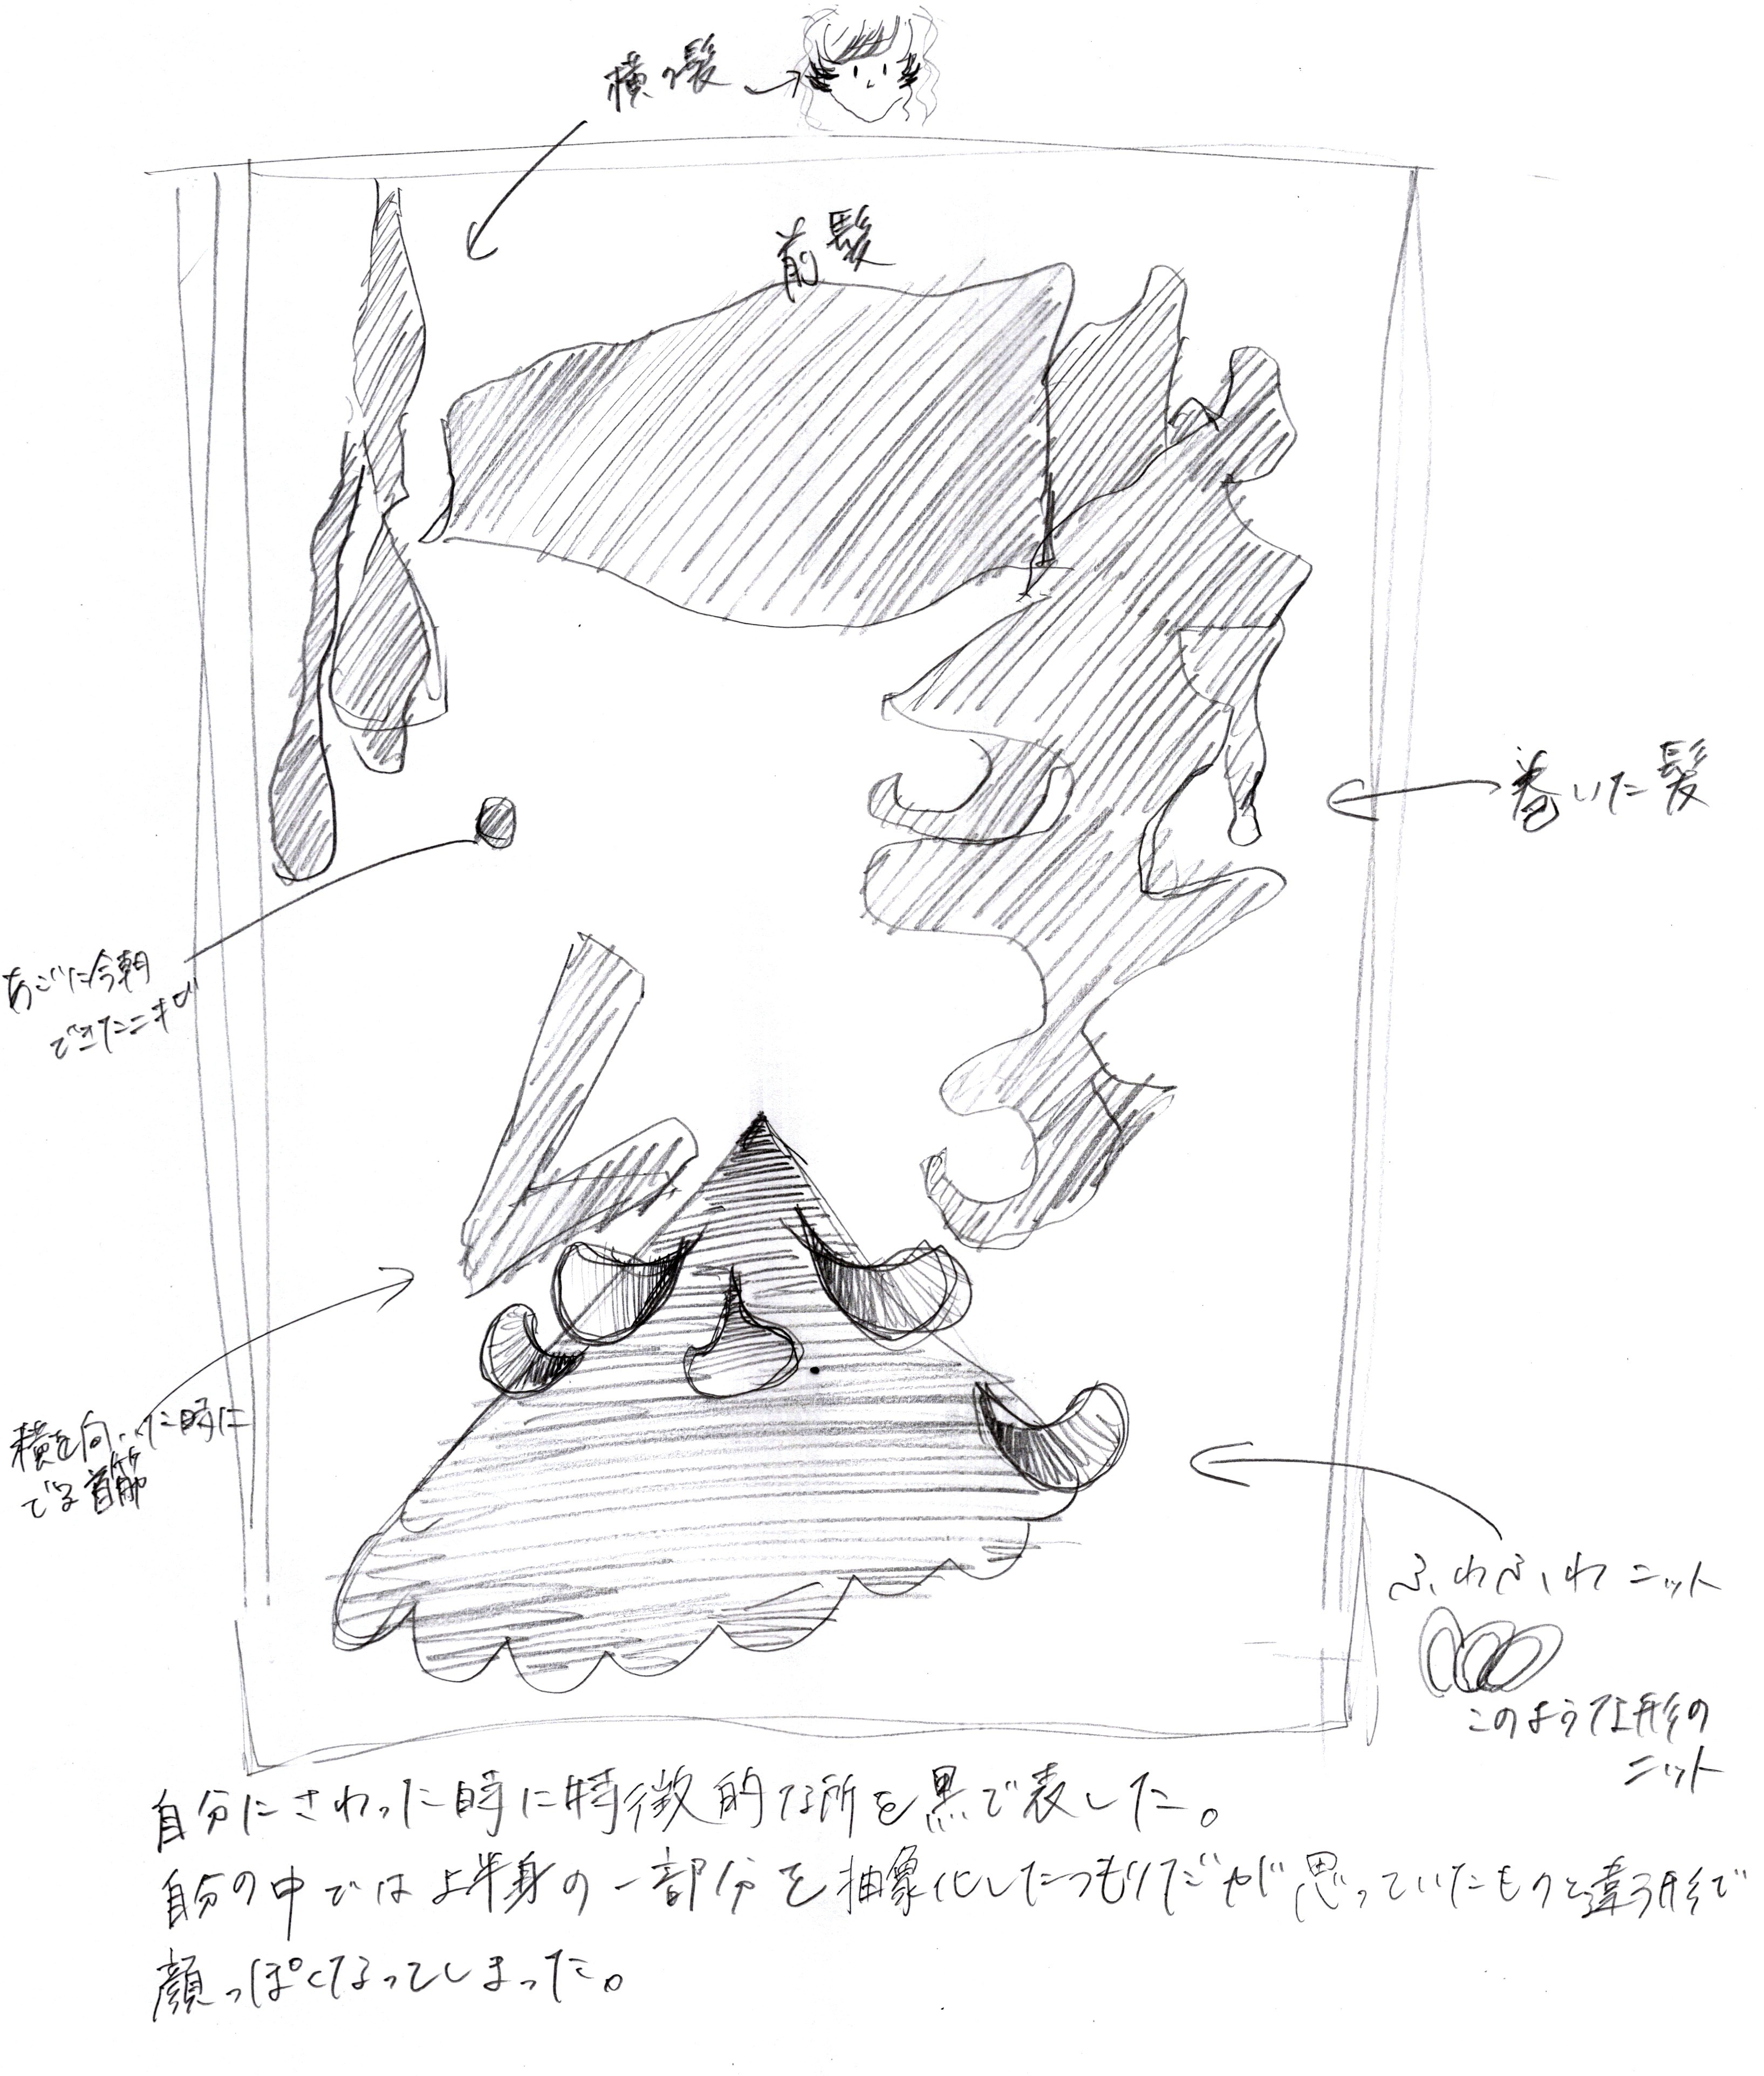 横の髪
前髪
巻いた髪
あごに今朝
できたニキビ
横を向いた時に
でる首筋
ふわふわニット
このような形の
ニット
自分にさわった時に特徴的な所を黒で表した。
自分の中では上半身の一部分を抽象化したつもりだが思っていたものと違う形で
顔っぽくなってしまった。